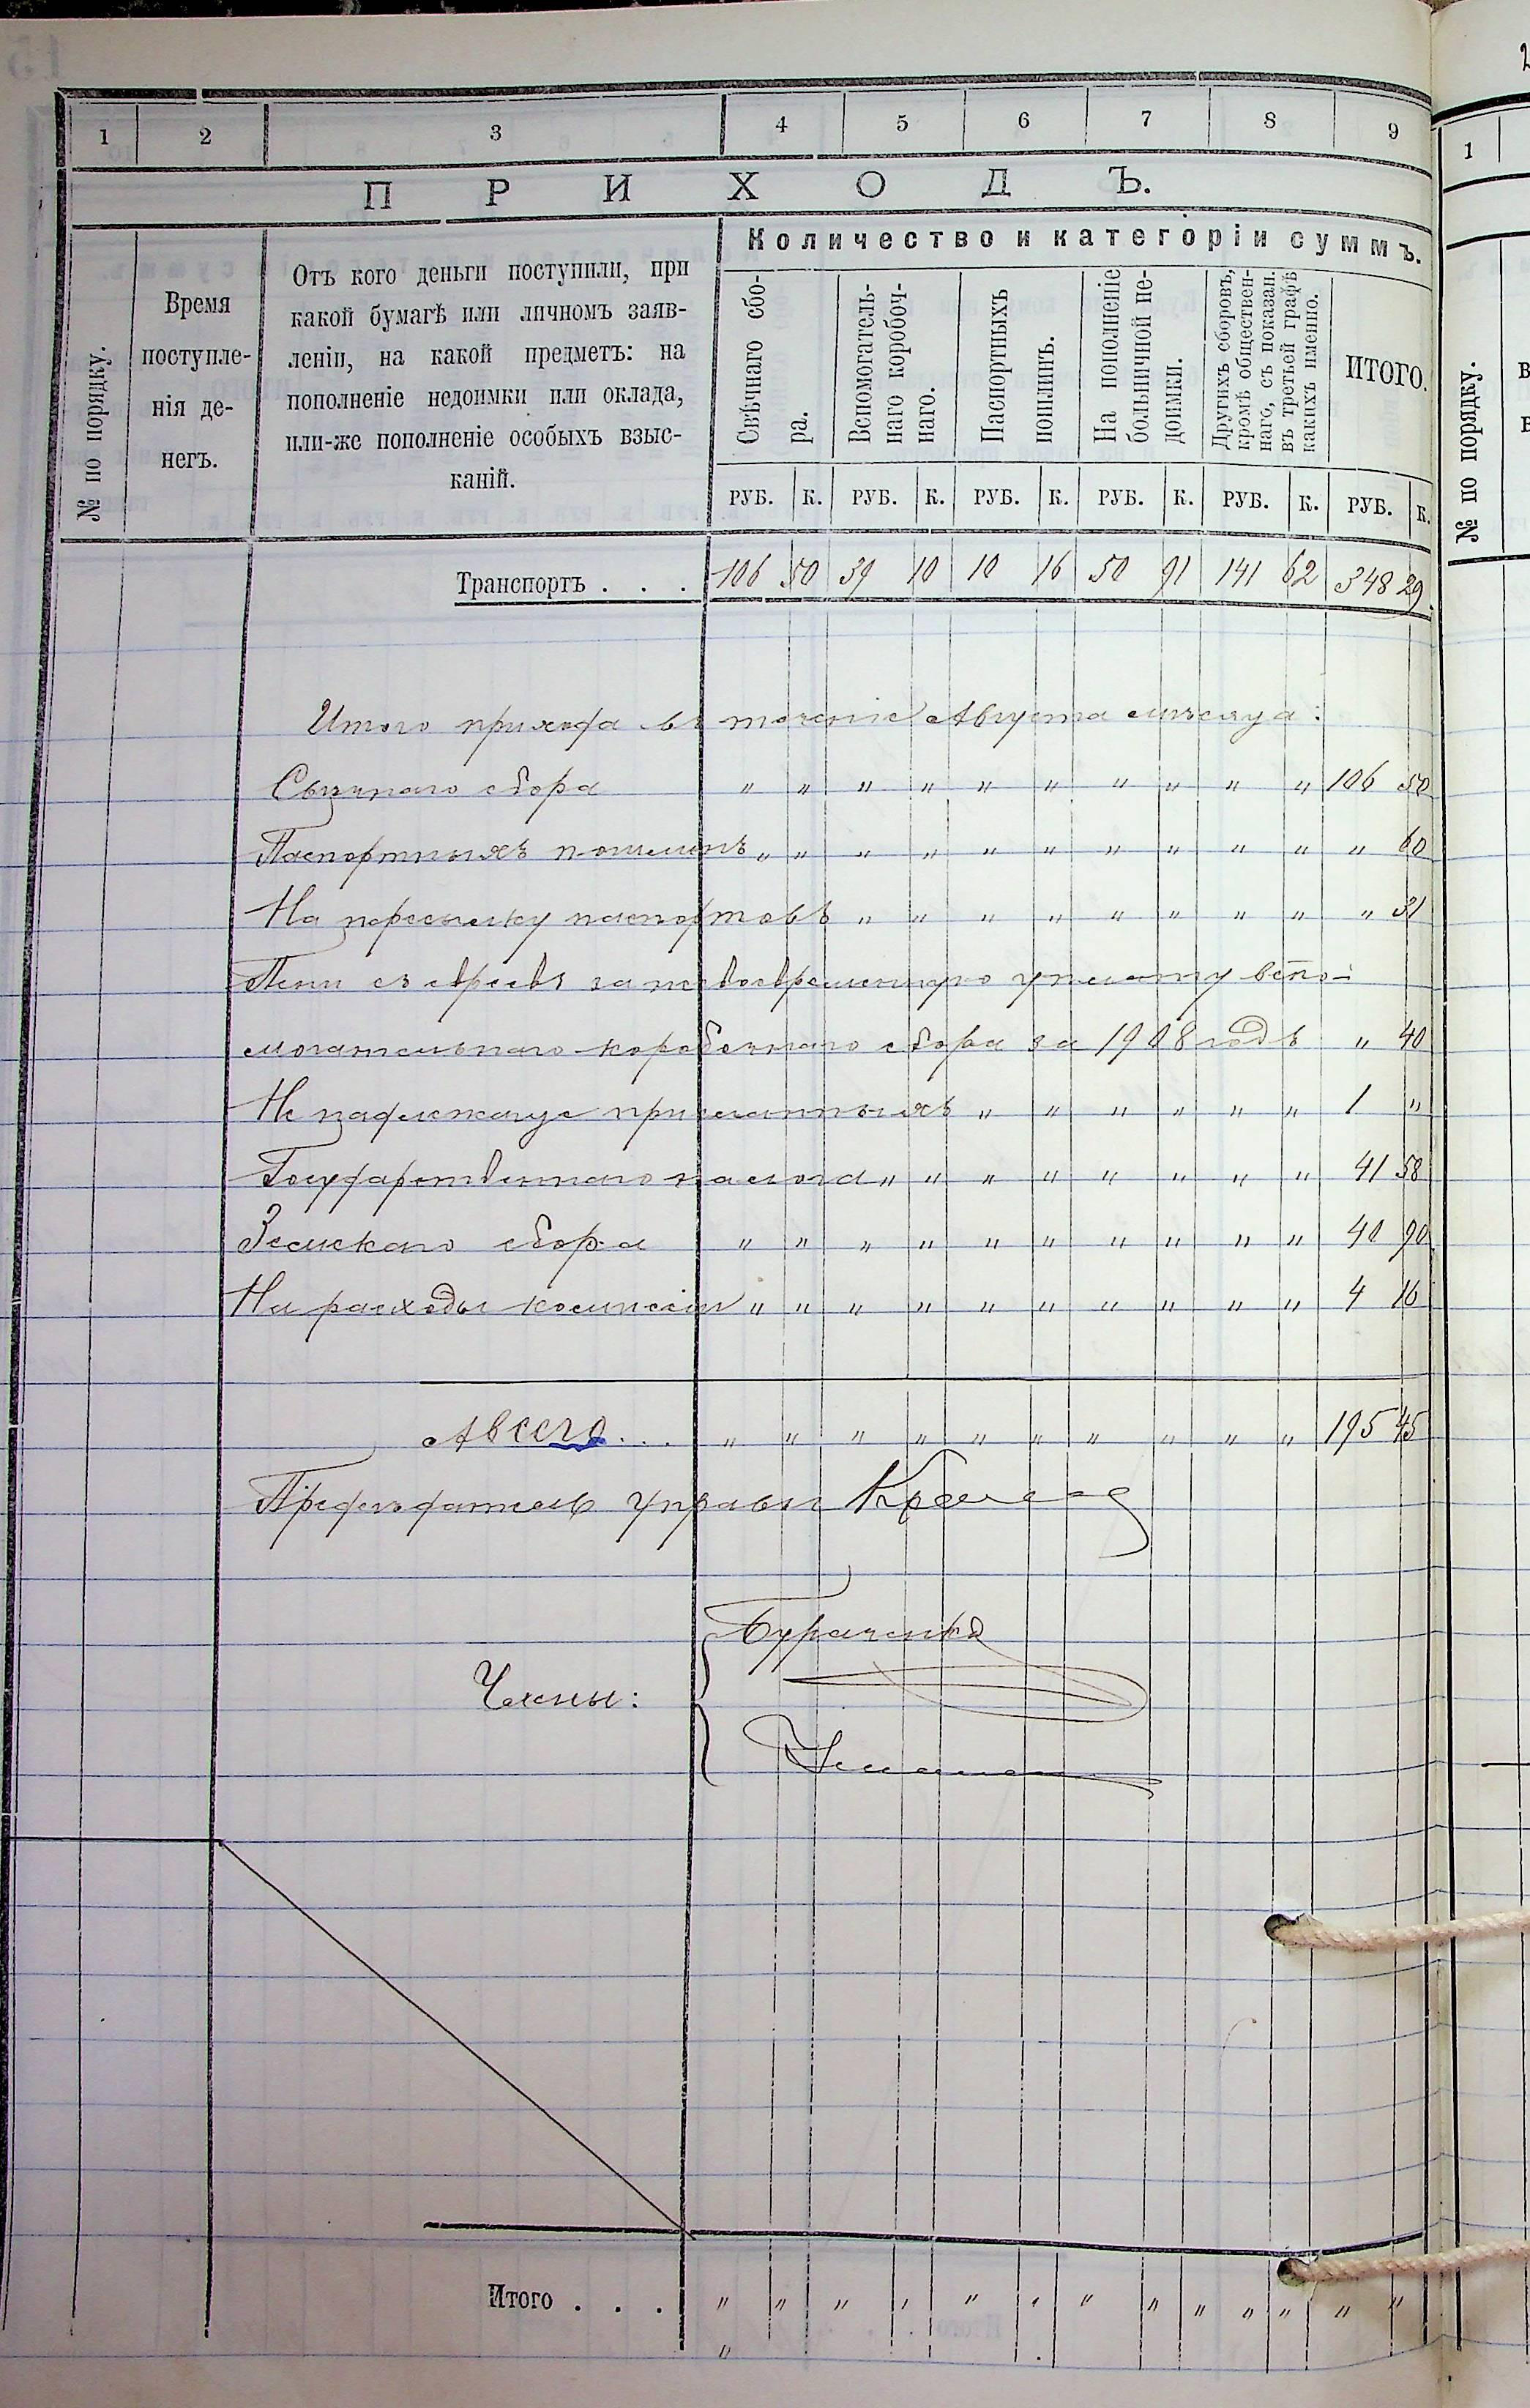 1 2 3 4 5 6 7 8 9
ПРИХОДЪ.
№ по порядку.
Время
поступле-
нія де-
негъ.
Отъ кого деньги поступили, при
какой бумагѣ или личномъ заяв-
леніи, на какой предметъ: на
пополненіе недоимки или оклада,
или-же пополненіе особыхъ взыс-
каній.
Количество и категоріи суммъ.
Свѣчнаго сбо-
ра.
Вспомогатель-
наго коробоч-
наго.
Паспортныхъ
пошлинъ.
На пополненіе
больничной не-
доимки.
Другихъ сборовъ,
кромѣ обществен-
наго, съ показан.
въ третьей графѣ
какихъ именно.
ИТОГО.
РУБ. К. РУБ. К. РУБ. К. РУБ. К. РУБ. К. РУБ. К.
Транспортъ . . . 106 50 39 10 10 16 50 91 141 62 348 29
Итого прихода въ теченіе Августа мѣсяца:
Свѣчнаго сбора " " " " " " " " " " 106 50
Паспортныхъ пошлинъ " " " " " " " " " " " 60
На пересылку паспортовъ " " " " " " " " " 31
Пени съ евреевъ за несвоевременную уплату вспо-
могательнаго коробочнаго сбора за 1908 годъ " 40
Не надлежаще присланныхъ " " " " " " 1 "
Государственнаго налога " " " " " " " " 41 58
Земскаго сбора " " " " " " " " " " 40 90
На расходы комиссіи " " " " " " " " " " 4 16
А всего... " " " " " " " " " " 195 45
Предсѣдатель Управы
Бураченко
Члены:
Итого . . . " " " " " " " " " " " " "
"
1
№ по порядку.